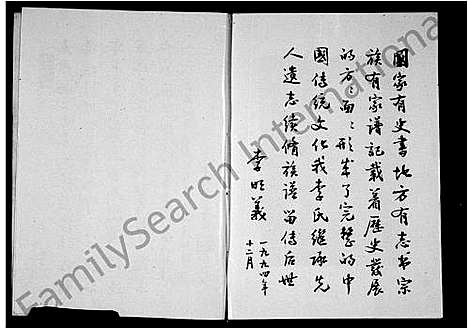 國家有史書地方有志书宗
族有家谱記載着歷史發展
的方方面面形成了完整的中
國传统文化我李氏继承先
人遗志续脩族谱留传后世
李明義
一九九四年
十二月
FamilySearch International